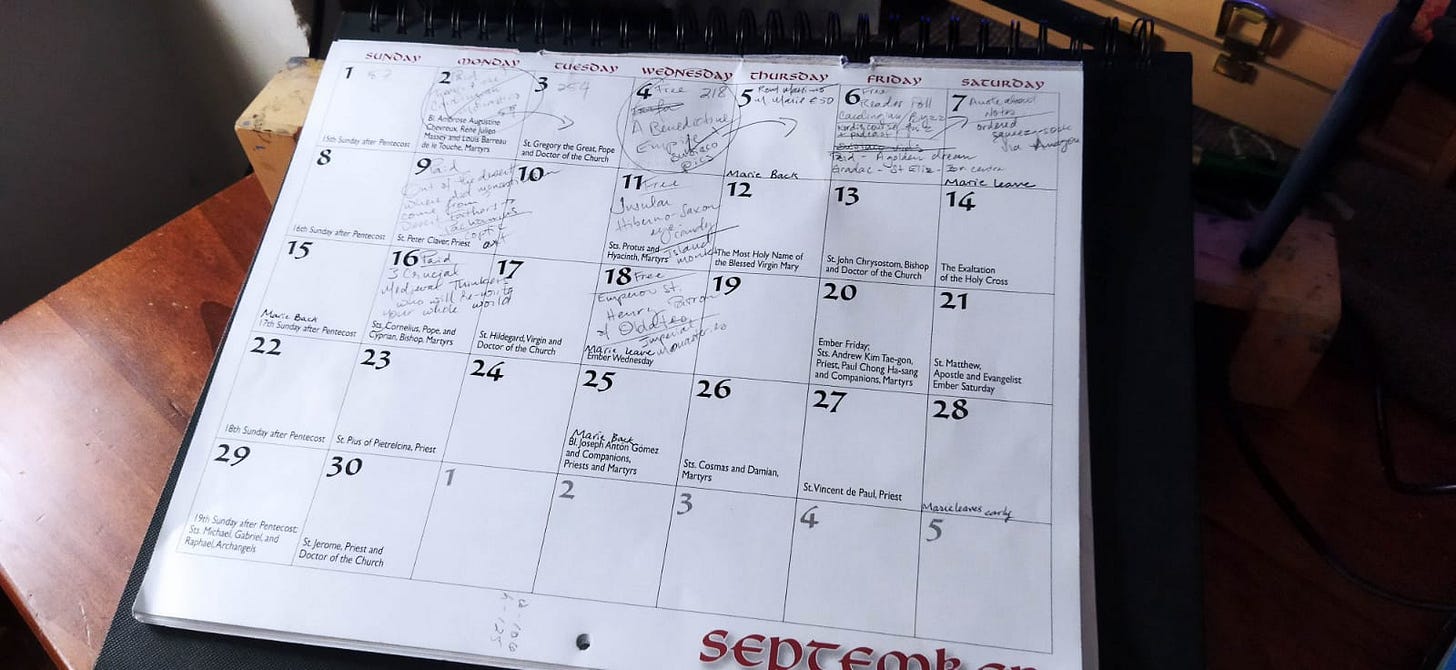 SUNDAY MONDAY TUESDAY WEDNESDAY THURSDAY FRIDAY SATURDAY
1
15th Sunday after Pentecost
2
Bl. Ambrose Augustine
Chevreux, Rene Julien
Massey and Louis Barreau
de le Touche, Martyrs
3 254
St. Gregory the Great, Pope
and Doctor of the Church
4 Free 218
A Benedictine
Empire
Subiaco
pics
5
w/ Marie €50
Marie Back
6 Free
Reader Poll
Paid - A golden dream
Gradac - St Eliz -
7
Notre
ordered
via Amazon
Marie leave
8
16th Sunday after Pentecost
9 Paid
Out of the desert
where did
come from
Desert Fathers to
Coptic
art
St. Peter Claver, Priest
10
11 Free
Insular
Hiberno-Saxon
eye candy
Island
Sts. Protus and
Hyacinth, Martyrs
12
The Most Holy Name of
the Blessed Virgin Mary
13
St. John Chrysostom, Bishop
and Doctor of the Church
14
The Exaltation
of the Holy Cross
15
Marie Back
17th Sunday after Pentecost
16 Paid
3 Crucial
Medieval Thinkers
who will re-write
your whole world
Sts. Cornelius, Pope, and
Cyprian, Bishop, Martyrs
17
St. Hildegard, Virgin and
Doctor of the Church
18 Free
Emperor St.
Henry Patron
of
Imperial
Marie leave
Ember Wednesday
19
20
Ember Friday;
Sts. Andrew Kim Tae-gon,
Priest, Paul Chong Ha-sang
and Companions, Martyrs
21
St. Matthew,
Apostle and Evangelist
Ember Saturday
22
18th Sunday after Pentecost
23
St. Pius of Pietrelcina, Priest
24
25
Marie Back
Bl. Joseph Anton Gomez
and Companions,
Priests and Martyrs
26
Sts. Cosmas and Damian,
Martyrs
27
St. Vincent de Paul, Priest
28
Marie leaves early
29
19th Sunday after Pentecost;
Sts. Michael, Gabriel, and
Raphael, Archangels
30
St. Jerome, Priest and
Doctor of the Church
1
2
3
4
5
SEPTEMBER